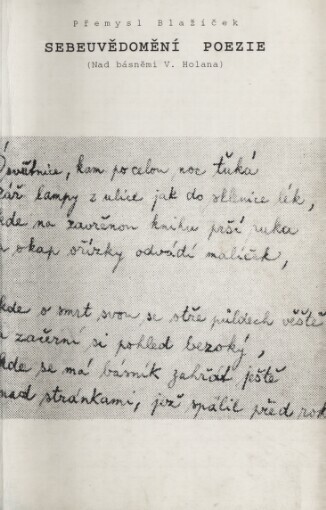 Přemysl Blažíček
SEBEUVĚDOMĚNÍ POEZIE
(Nad básněmi V. Holana)
světnice, kam po celou noc ťuká
zář lampy z ulice jak do sklenice lék,
kde na zavřenou knihu prší ruka
a okap ořízky odvádí malíček,
kde o smrt svou se otře půldech věště
a začerní si pohled bezoký,
kde se má básník zahřát ještě
nad stránkami, jež spálil před rok